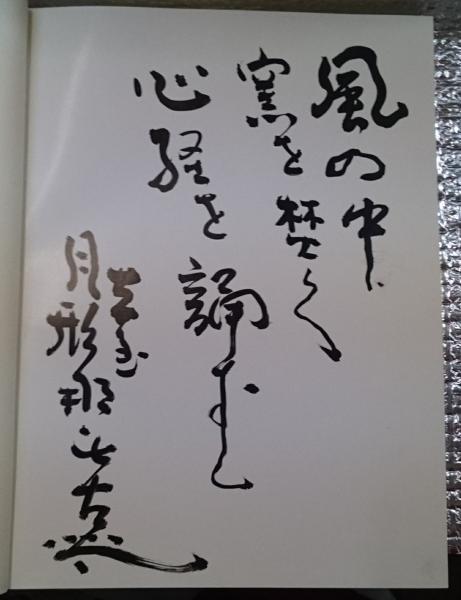 風の中
窯を焚く
心経を誦すし
月形那比古